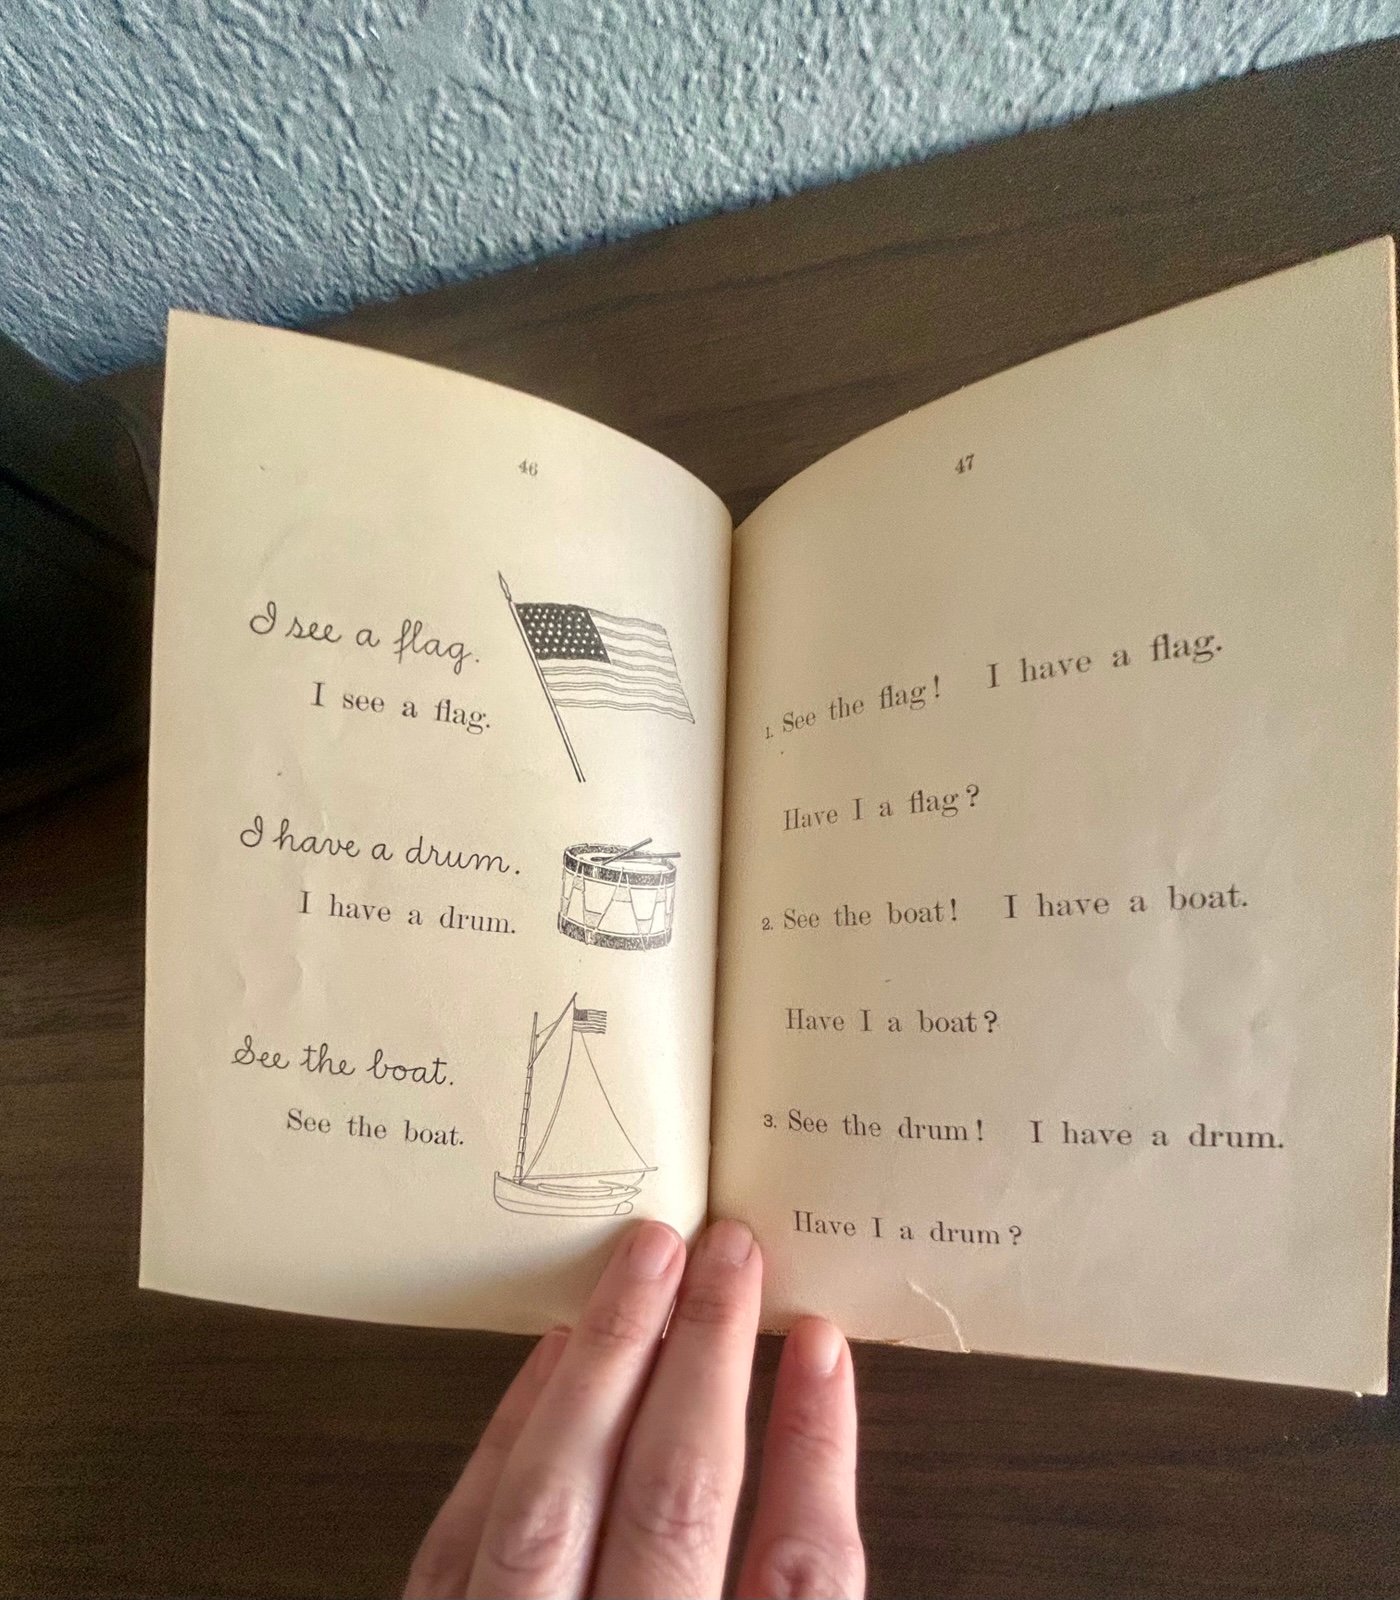 46
I see a flag.
I see a flag.
I have a drum.
I have a drum.
See the boat.
See the boat.
47
1. See the flag! I have a flag.
Have I a flag?
2. See the boat! I have a boat.
Have I a boat?
3. See the drum! I have a drum.
Have I a drum?